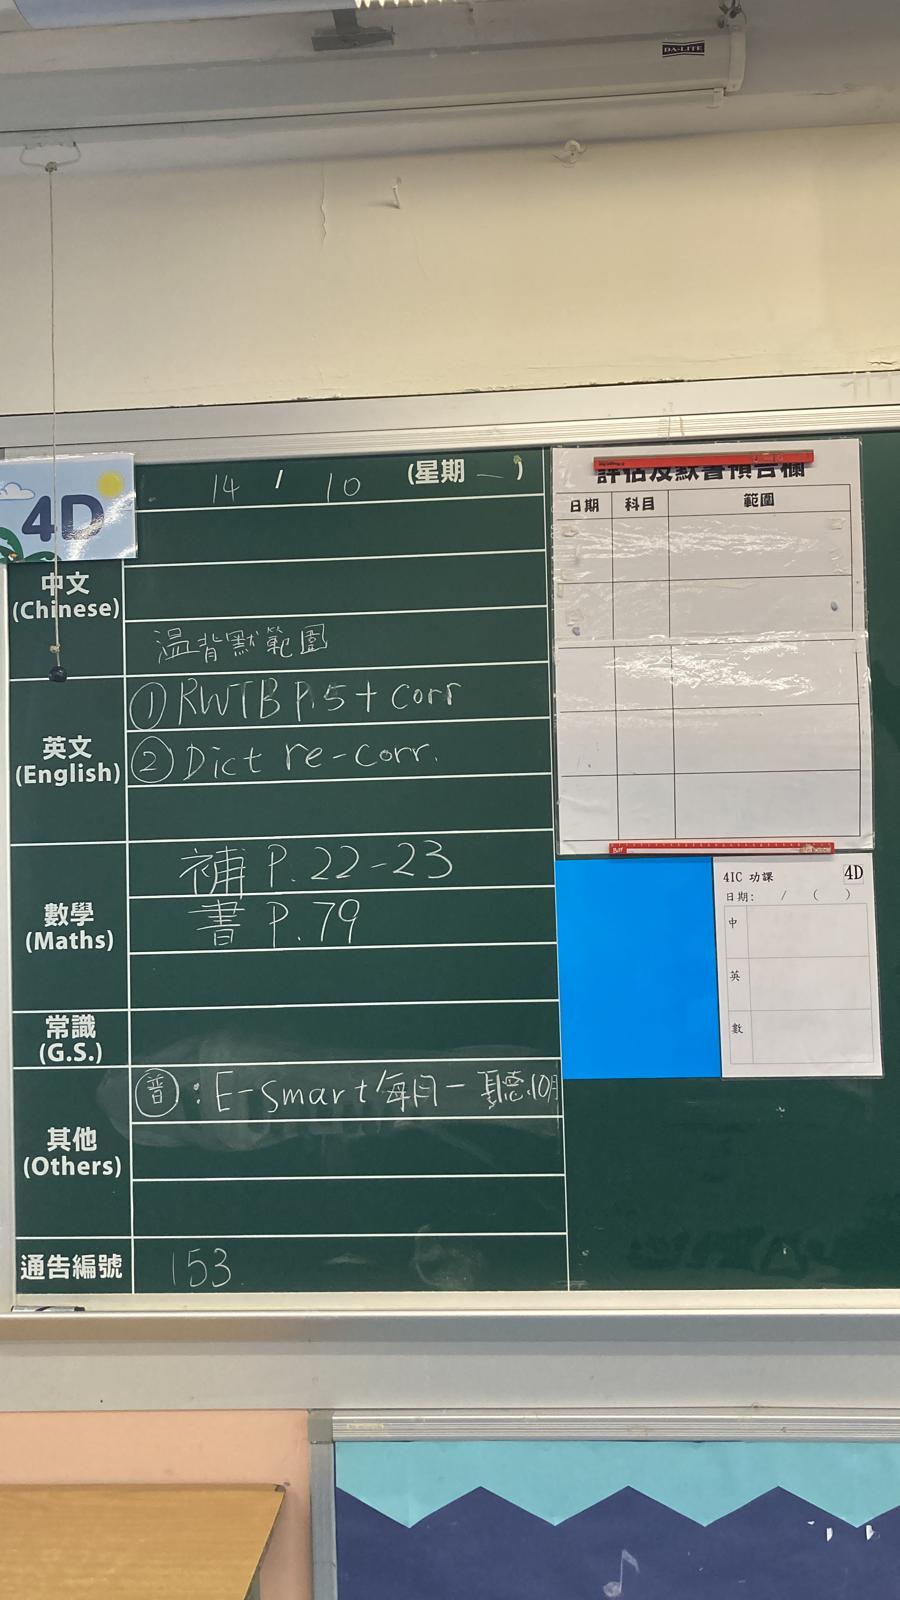 DA-LITE
4D
14 / 10 (星期一)
中文
(Chinese)
温背默範圍
英文
(English)
① RWTB P.5 + corr
② Dict re-corr.
數學
(Maths)
補 P. 22-23
書 P. 79
常識
(G.S.)
其他
(Others)
普 : E-smart 每日一聽 10月
通告編號
153
評估及默書預告欄
日期 科目 範圍
4IC 功課 4D
日期: / ( )
中
英
數